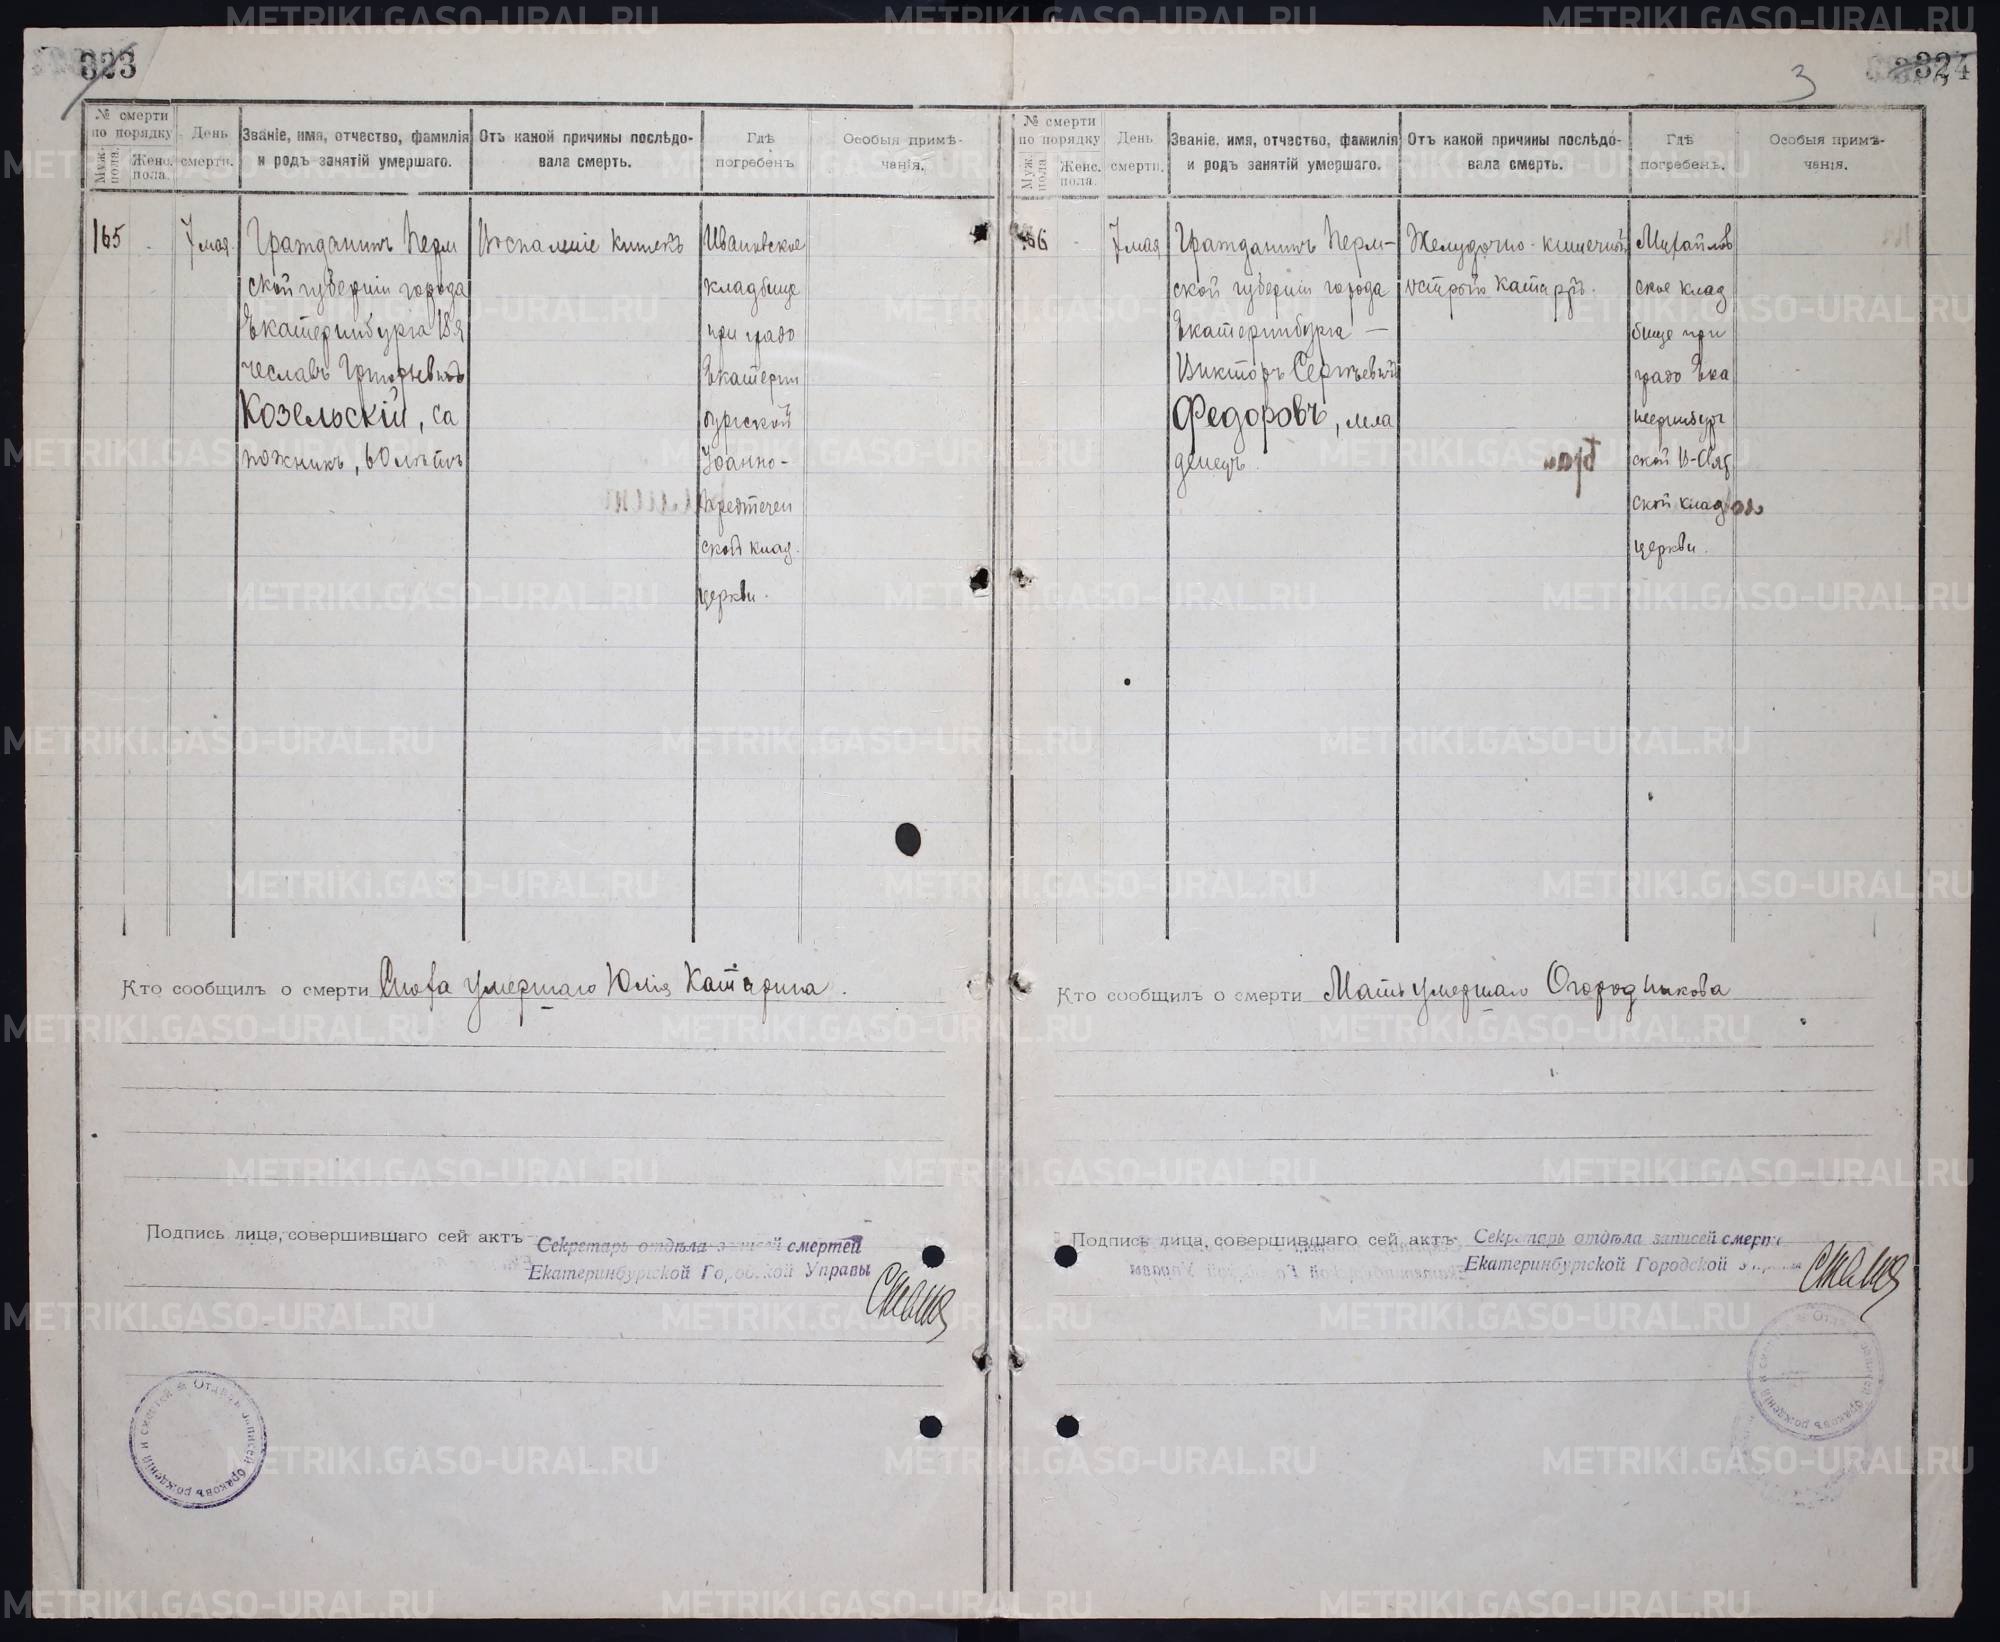 323
№ смерти
по порядку
Муж. пола.
Женс. пола.
День смерти.
Званіе, имя, отчество, фамилія
и родъ занятій умершаго.
Отъ какой причины послѣдо-
вала смерть.
Гдѣ
погребенъ
Особыя примѣ-
чанія.
165
7 мая.
Гражданинъ Перм
ской губерніи города
Екатеринбурга Вя
чеславъ Григорьевичъ
Козельскій, са
пожникъ, 60 лѣтъ
Воспаленіе кишекъ
Ивановское
кладбище
при градо
Екатерин
бургской
Іоанно-
Предтечен
ской клад.
церкви.
Кто сообщилъ о смерти умершаго Юлія Катерина.
Подпись лица, совершившаго сей актъ
Секретарь отдѣла записей смертей
Екатеринбургской Городской Управы
Отдѣлъ записей браковъ рожденій и смертей
324
3
№ смерти
по порядку
Муж. пола
Женс. пола.
День
смерти.
Званіе, имя, отчество, фамилія
и родъ занятій умершаго.
Отъ какой причины послѣдо-
вала смерть.
Гдѣ
погребенъ.
Особыя примѣ-
чанія.
166
7 мая
Гражданинъ Перм-
ской губерніи города
Екатеринбурга —
Викторъ Сергѣевичъ
Федоровъ, мла
денецъ.
Желудочно-кишечный
острый катарръ.
Михайлов
ское клад
бище при
градо Ека
теринбург
ской В-Свят
ской клад
церкви.
Кто сообщилъ о смерти Мать умершаго Огородникова
Подпись лица, совершившаго сей актъ
Секретарь отдѣла записей смертей
Екатеринбургской Городской Управы
METRIKI.GASO-URAL.RU